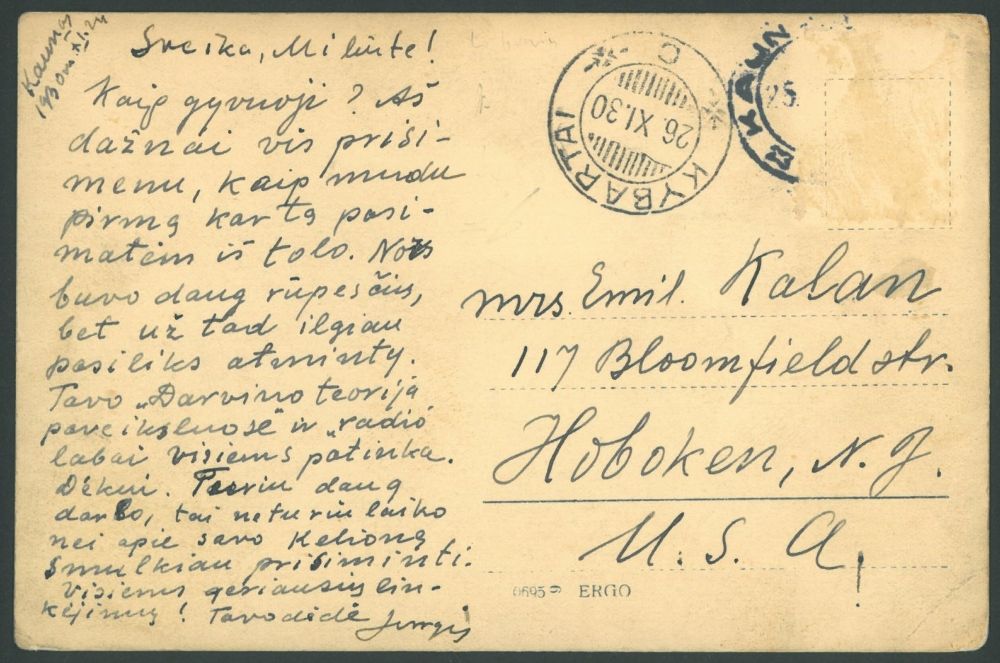 Kaunas
1930 m. XI. 24
Sveika, Miliute!
Kaip gyvuoji? Aš
dažnai vis prisi-
menu, kaip mudu
pirmą kartą pasi-
matėm iš tolo. Nors
buvo daug rūpesčių,
bet už tad ilgiau
pasiliks atminty.
Tavo „Darvino teorija
paveiksluose ir „radio
labai visiems patinka.
Dėkui. Turiu daug
darbo, tai neturiu laiko
nei apie savo kelionę
smulkiau prisiminti.
Visiems geriausių lin-
kėjimų! Tavo dėdė Jurgis
KYBARTAI C
26. XI. 30
KAUN
25.
mrs. Emil. Kalan
117 Bloomfield str.
Hoboken, N. J.
U. S. A!
0695 ERGO